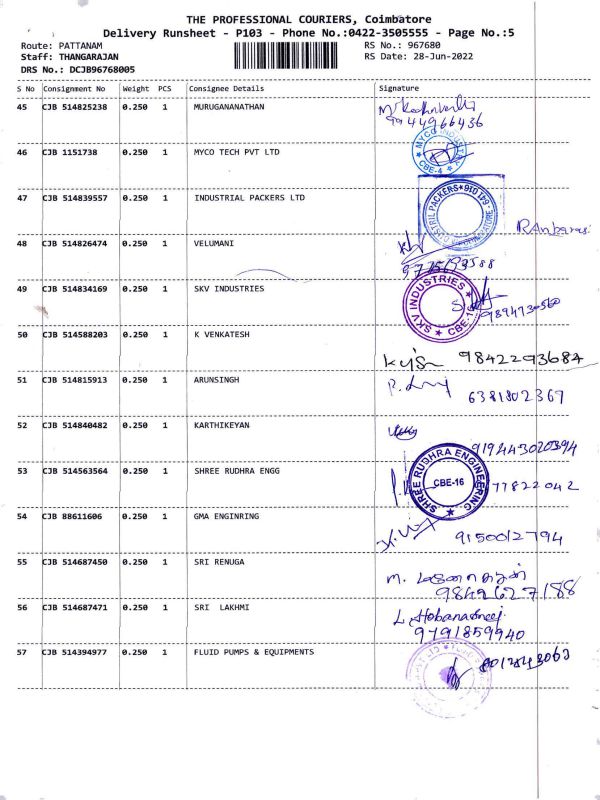 THE PROFESSIONAL COURIERS, Coimbatore
Delivery Runsheet - P103 - Phone No.:0422-3505555 - Page No.:5
Route: PATTANAM RS No.: 967680
Staff: THANGARAJAN RS Date: 28-Jun-2022
DRS No.: DCJB96768005
S No Consignment No Weight PCS Consignee Details Signature
45 CJB 514825238 0.250 1 MURUGANANATHAN
9944966436
46 CJB 1151738 0.250 1 MYCO TECH PVT LTD MYCO INDUSTRI CBE-4
47 CJB 514839557 0.250 1 INDUSTRIAL PACKERS LTD
PACKERS 641 016
48 CJB 514826474 0.250 1 VELUMANI
49 CJB 514834169 0.250 1 SKV INDUSTRIES SKV INDUSTRIES CBE-16
9894730560
50 CJB 514588203 0.250 1 K VENKATESH
9842293684
51 CJB 514815913 0.250 1 ARUNSINGH
6381802369
52 CJB 514840482 0.250 1 KARTHIKEYAN
919443020394
53 CJB 514563564 0.250 1 SHREE RUDHRA ENGG SHREE RUDHRA ENGINEERING CBE-16
77822042
54 CJB 88611606 0.250 1 GMA ENGINRING
9150012794
55 CJB 514687450 0.250 1 SRI RENUGA
9849627188
56 CJB 514687471 0.250 1 SRI LAKHMI
9791859940
57 CJB 514394977 0.250 1 FLUID PUMPS & EQUIPMENTS